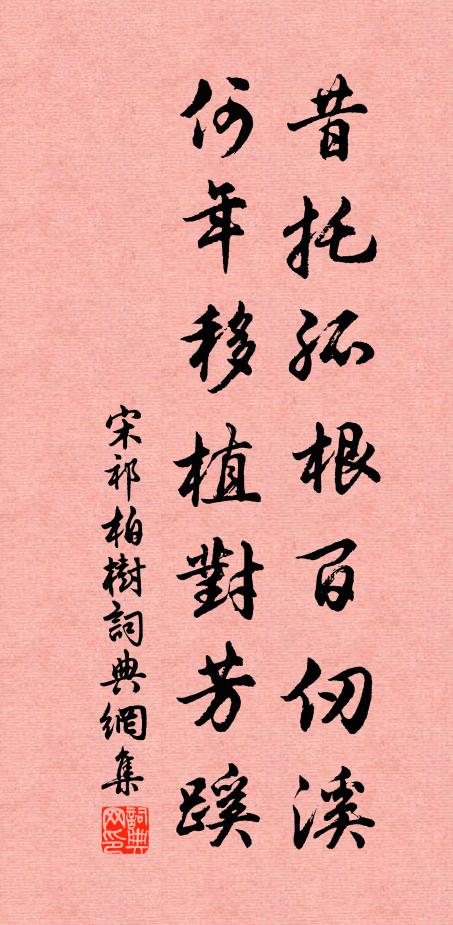 昔托孤根百仞溪
何年移植對芳蹊
宋祁柏樹詞典網集
詞典网印